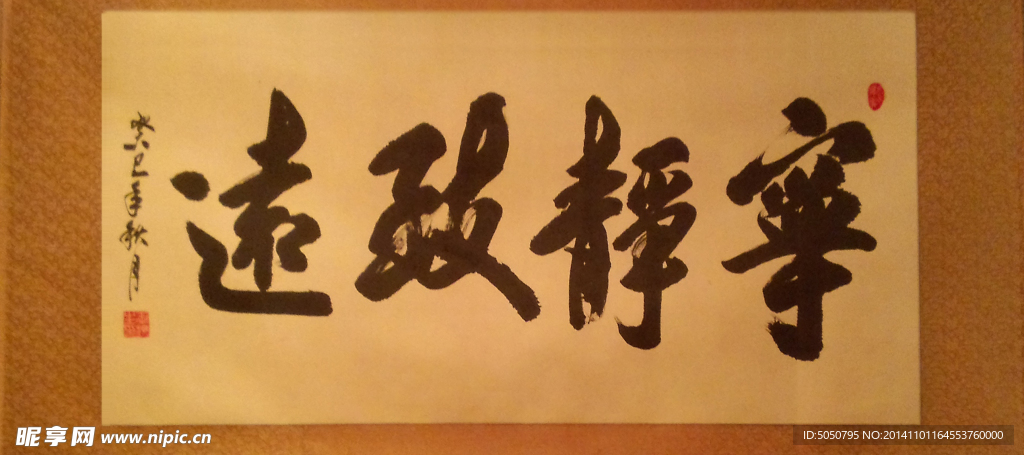 寧靜致遠
癸巳年秋月
昵享网 www.nipic.cn
ID:5050795 NO:20141101164553760000